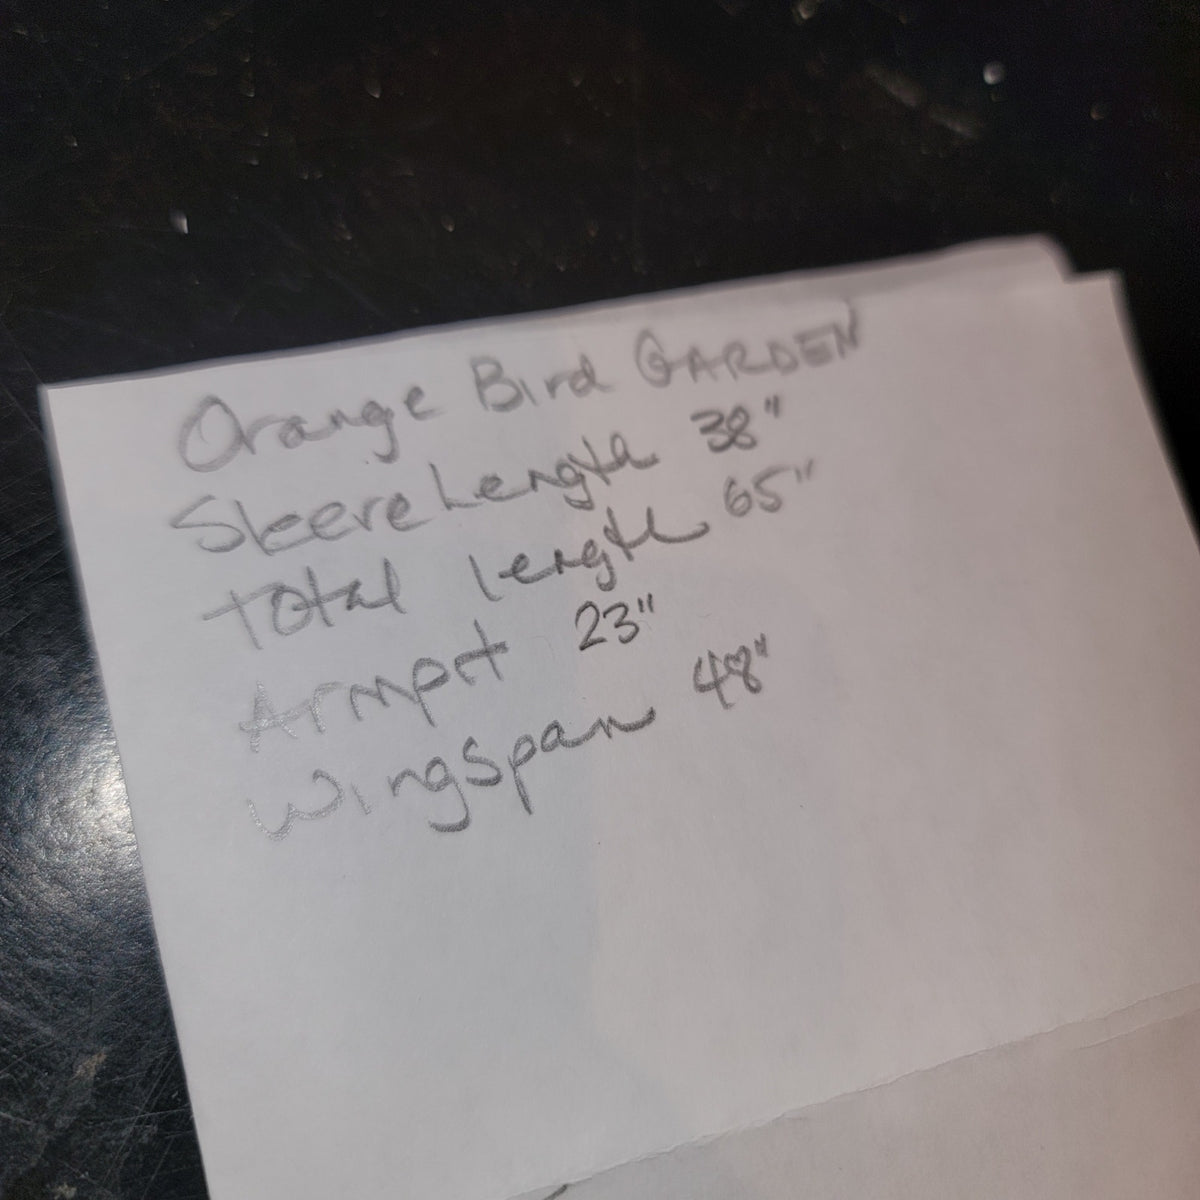 Orange Bird GARDEN
Sleeve Length 38"
total length 65"
Armpit 23"
Wingspan 48"